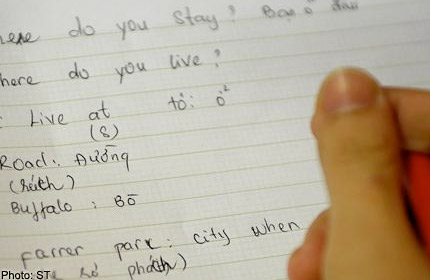 do you stay? Bạn ở đâu
here do you live?
: Live at tô: ở
(s)
Road: Đường
(sách)
Buffalo : Bò
farrer park: city when
phách)
Photo: ST